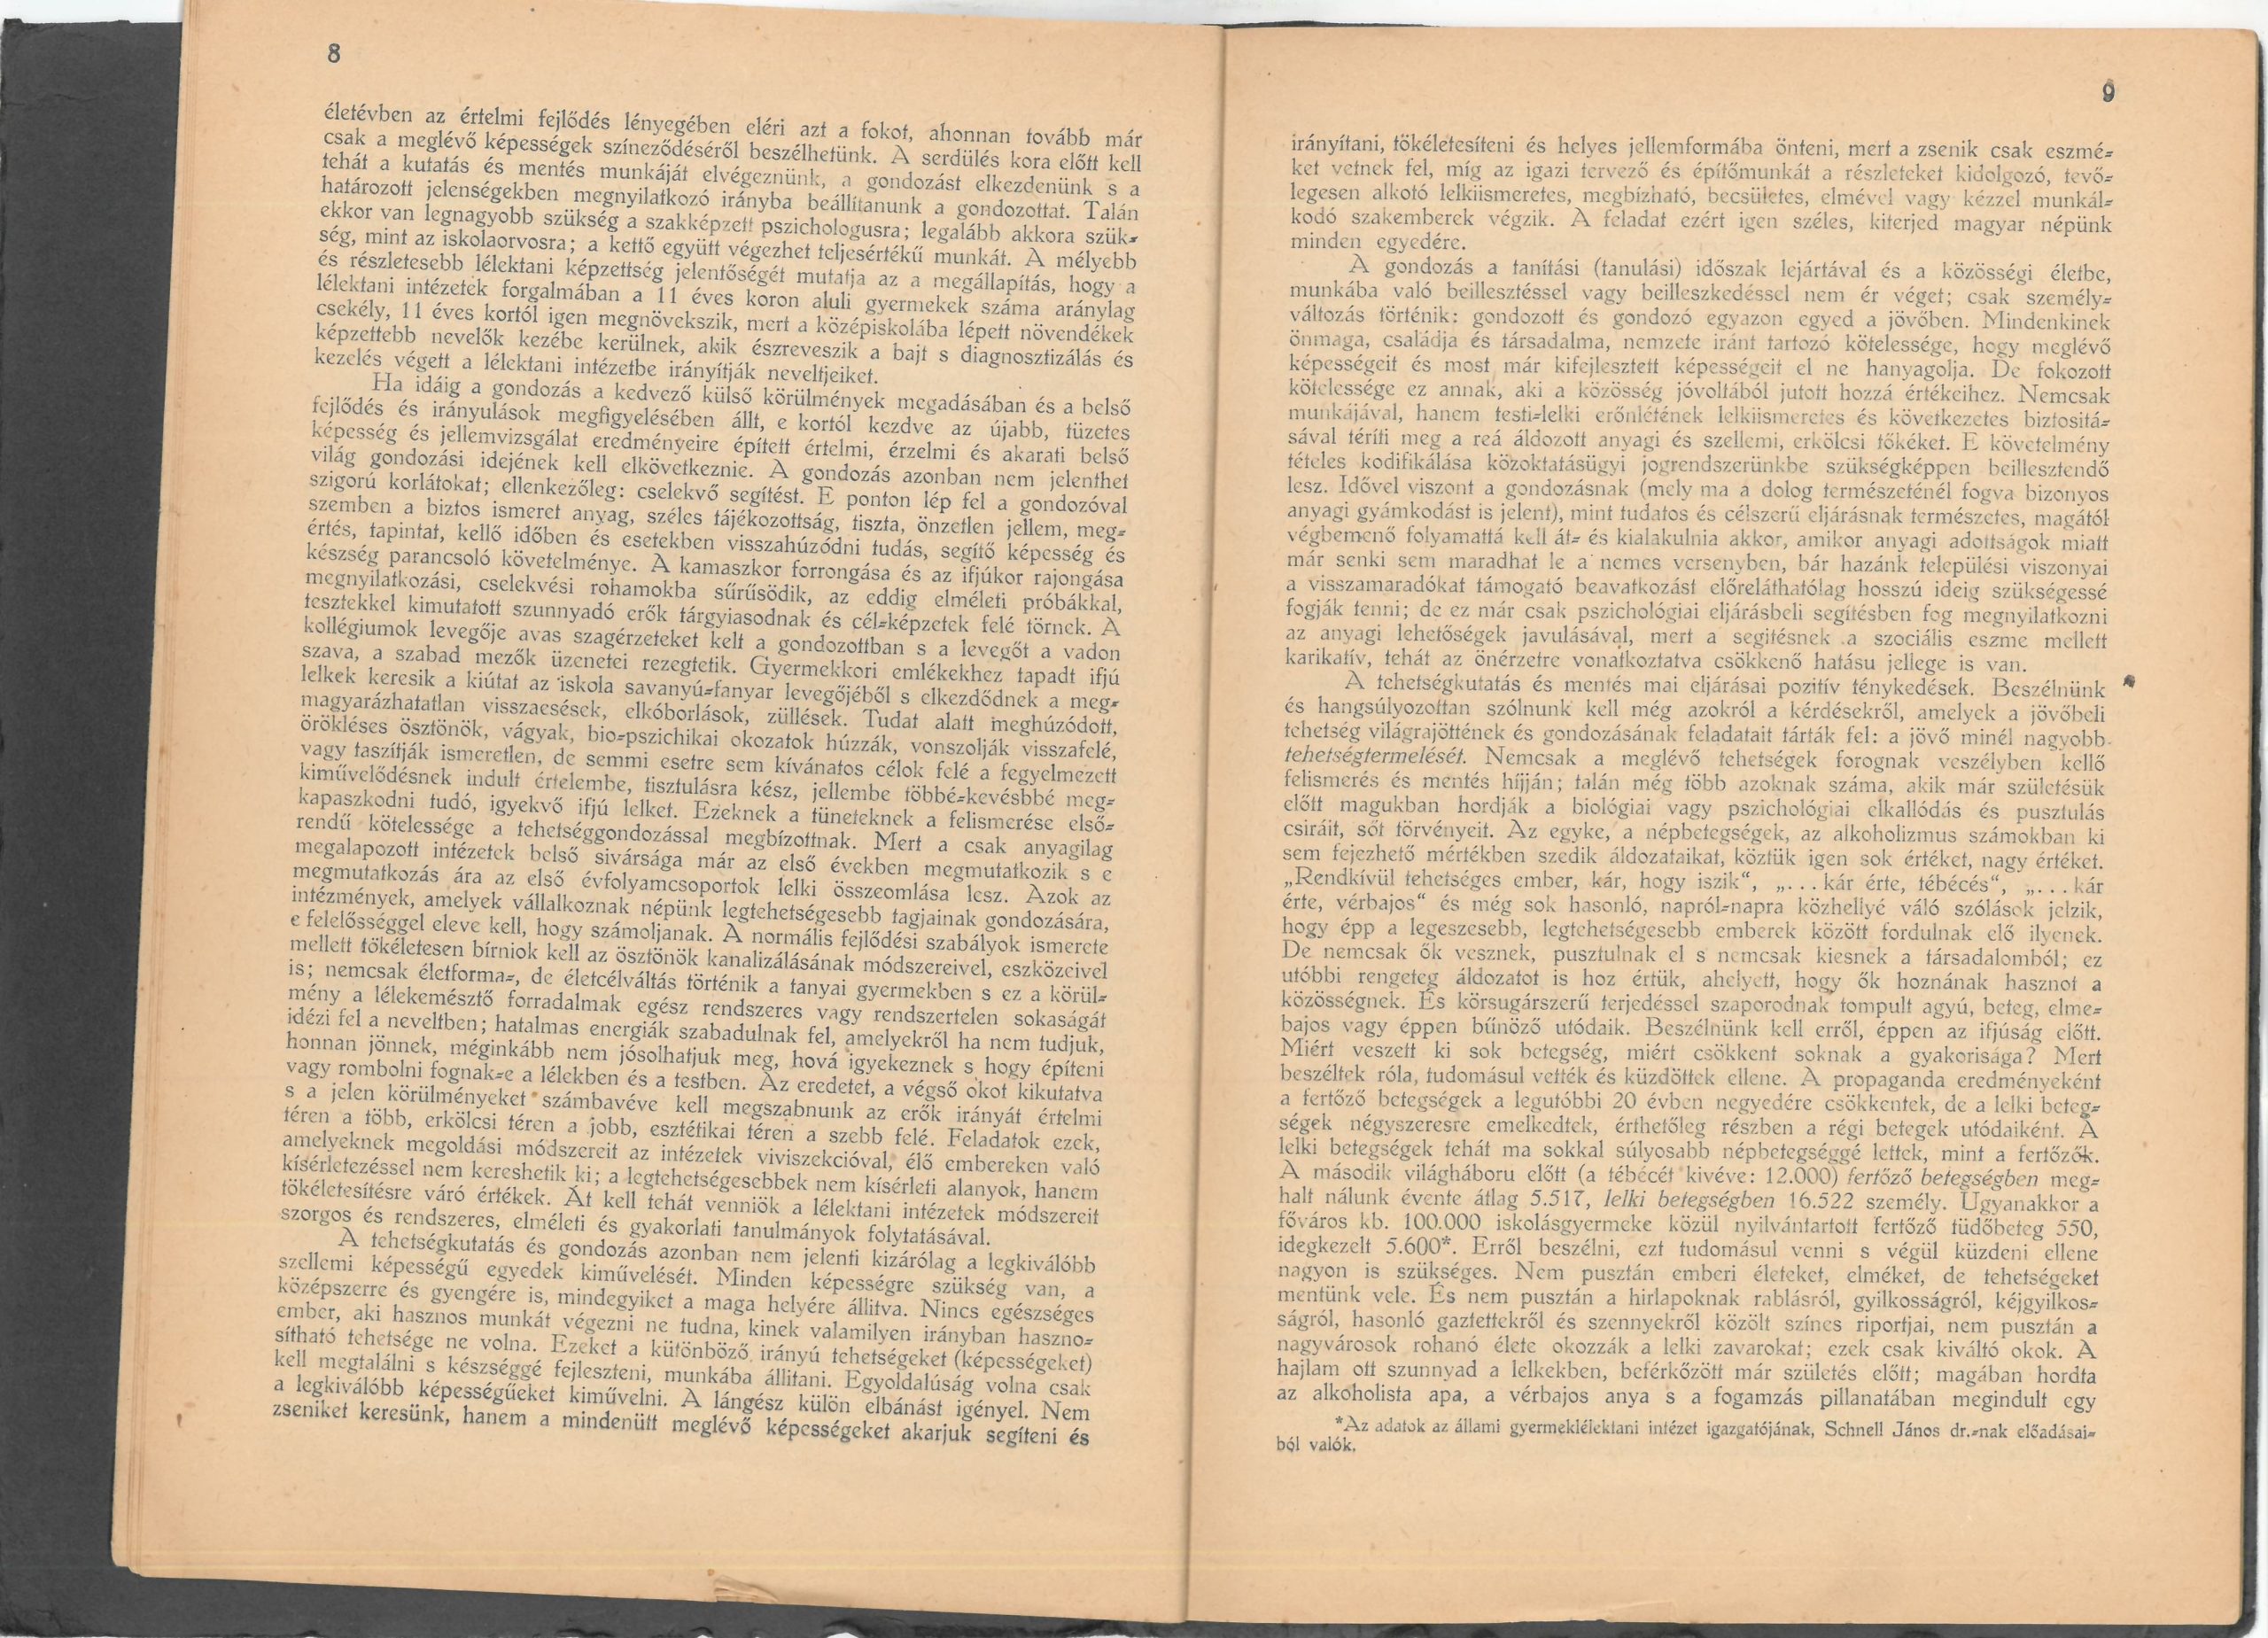 8
életévben az értelmi fejlődés lényegében eléri azt a fokot, ahonnan tovább már
csak a meglévő képességek színeződéséről beszélhetünk. A serdülés kora előtt kell
tehát a kutatás és mentés munkáját elvégeznünk, a gondozást elkezdenünk s a
határozott jelenségekben megnyilatkozó irányba beállítanunk a gondozottat. Talán
ekkor van legnagyobb szükség a szakképzett pszichologusra; legalább akkora szük-
ség, mint az iskolaorvosra; a kettő együtt végezhet teljesértékű munkát. A mélyebb
és részletesebb lélektani képzettség jelentőségét mutatja az a megállapítás, hogy a
lélektani intézetek forgalmában a 11 éves koron aluli gyermekek száma aránylag
csekély, 11 éves kortól igen megnövekszik, mert a középiskolába lépett növendékek
képzettebb nevelők kezébe kerülnek, akik észreveszik a bajt s diagnosztizálás és
kezelés végett a lélektani intézetbe irányítják neveltjeiket.
Ha idáig a gondozás a kedvező külső körülmények megadásában és a belső
fejlődés és irányulások megfigyelésében állt, e kortól kezdve az újabb, tüzetes
képesség és jellemvizsgálat eredményeire épített értelmi, érzelmi és akarati belső
világ gondozási idejének kell elkövetkeznie. A gondozás azonban nem jelenthet
szigorú korlátokat; ellenkezőleg: cselekvő segítést. E ponton lép fel a gondozóval
szemben a biztos ismeret anyag, széles tájékozottság, tiszta, önzetlen jellem, meg-
értés, tapintat, kellő időben és esetekben visszahúzódni tudás, segítő képesség és
készség parancsoló követelménye. A kamaszkor forrongása és az ifjúkor rajongása
megnyilatkozási, cselekvési rohamokba sűrűsödik, az eddig elméleti próbákkal,
tesztekkel kimutatott szunnyadó erők tárgyiasodnak és cél-képzetek felé törnek. A
kollégiumok levegője avas szagérzeteket kelt a gondozottban s a levegőt a vadon
szava, a szabad mezők üzenetei rezegtetik. Gyermekkori emlékekhez tapadt ifjú
lelkek keresik a kiútat az iskola savanyú-fanyar levegőjéből s elkezdődnek a meg-
magyarázhatatlan visszaesések, elkóborlások, züllések. Tudat alatt meghúzódott,
örökléses ösztönök, vágyak, bio-pszichikai okozatok húzzák, vonszolják visszafelé,
vagy taszítják ismeretlen, de semmi esetre sem kívánatos célok felé a fegyelmezett
kiművelődésnek indult értelembe, tisztulásra kész, jellembe többé-kevésbbé meg-
kapaszkodni tudó, igyekvő ifjú lelket. Ezeknek a tüneteknek a felismerése első-
rendű kötelessége a tehetséggondozással megbízottnak. Mert a csak anyagilag
megalapozott intézetek belső sivársága már az első években megmutatkozik s e
megmutatkozás ára az első évfolyamcsoportok lelki összeomlása lesz. Azok az
intézmények, amelyek vállalkoznak népünk legtehetségesebb tagjainak gondozására,
e felelősséggel eleve kell, hogy számoljanak. A normális fejlődési szabályok ismerete
mellett tökéletesen bírniok kell az ösztönök kanalizálásának módszereivel, eszközeivel
is; nemcsak életforma-, de életcélváltás történik a tanyai gyermekben s ez a körül-
mény a lélekemésztő forradalmak egész rendszeres vagy rendszertelen sokaságát
idézi fel a neveltben; hatalmas energiák szabadulnak fel, amelyekről ha nem tudjuk,
honnan jönnek, méginkább nem jósolhatjuk meg, hová igyekeznek s hogy építeni
vagy rombolni fognak-e a lélekben és a testben. Az eredetet, a végső okot kikutatva
s a jelen körülményeket számbavéve kell megszabnunk az erők irányát értelmi
téren a több, erkölcsi téren a jobb, esztétikai téren a szebb felé. Feladatok ezek,
amelyeknek megoldási módszereit az intézetek viviszekcióval, élő embereken való
kísérletezéssel nem kereshetik ki; a legtehetségesebbek nem kísérleti alanyok, hanem
tökéletesítésre váró értékek. Át kell tehát venniök a lélektani intézetek módszereit
szorgos és rendszeres, elméleti és gyakorlati tanulmányok folytatásával.
A tehetségkutatás és gondozás azonban nem jelenti kizárólag a legkiválóbb
szellemi képességű egyedek kiművelését. Minden képességre szükség van, a
középszerre és gyengére is, mindegyiket a maga helyére állitva. Nincs egészséges
ember, aki hasznos munkát végezni ne tudna, kinek valamilyen irányban haszno-
sítható tehetsége ne volna. Ezeket a kütönböző irányú tehetségeket (képességeket)
kell megtalálni s készséggé fejleszteni, munkába állitani. Egyoldalúság volna csak
a legkiválóbb képességűeket kiművelni. A lángész külön elbánást igényel. Nem
zseniket keresünk, hanem a mindenütt meglévő képességeket akarjuk segíteni és
9
irányítani, tökéletesíteni és helyes jellemformába önteni, mert a zsenik csak eszmé-
ket vetnek fel, míg az igazi tervező és építőmunkát a részleteket kidolgozó, tevő-
legesen alkotó lelkiismeretes, megbízható, becsületes, elmével vagy kézzel munkál-
kodó szakemberek végzik. A feladat ezért igen széles, kiterjed magyar népünk
minden egyedére.
A gondozás a tanítási (tanulási) időszak lejártával és a közösségi életbe,
munkába való beillesztéssel vagy beilleszkedéssel nem ér véget; csak személy-
változás történik: gondozott és gondozó egyazon egyed a jövőben. Mindenkinek
önmaga, családja és társadalma, nemzete iránt tartozó kötelessége, hogy meglévő
képességeit és most már kifejlesztett képességeit el ne hanyagolja. De fokozott
kötelessége ez annak, aki a közösség jóvoltából jutott hozzá értékeihez. Nemcsak
munkájával, hanem testi-lelki erőnlétének lelkiismeretes és következetes biztositá-
sával téríti meg a reá áldozott anyagi és szellemi, erkölcsi tőkéket. E követelmény
tételes kodifikálása közoktatásügyi jogrendszerünkbe szükségképpen beillesztendő
lesz. Idővel viszont a gondozásnak (mely ma a dolog természeténél fogva bizonyos
anyagi gyámkodást is jelent), mint tudatos és célszerű eljárásnak természetes, magától
végbemenő folyamattá kell át- és kialakulnia akkor, amikor anyagi adottságok miatt
már senki sem maradhat le a nemes versenyben, bár hazánk települési viszonyai
a visszamaradókat támogató beavatkozást előreláthatólag hosszú ideig szükségessé
fogják tenni; de ez már csak pszichológiai eljárásbeli segítésben fog megnyilatkozni
az anyagi lehetőségek javulásával, mert a segitésnek a szociális eszme mellett
karikatív, tehát az önérzetre vonatkoztatva csökkenő hatásu jellege is van.
A tehetségkutatás és mentés mai eljárásai pozitív ténykedések. Beszélnünk
és hangsúlyozottan szólnunk kell még azokról a kérdésekről, amelyek a jövőbeli
tehetség világrajöttének és gondozásának feladatait tárták fel: a jövő minél nagyobb
tehetségtermelését. Nemcsak a meglévő tehetségek forognak veszélyben kellő
felismerés és mentés híjján; talán még több azoknak száma, akik már születésük
előtt magukban hordják a biológiai vagy pszichológiai elkallódás és pusztulás
csiráit, sőt törvényeit. Az egyke, a népbetegségek, az alkoholizmus számokban ki
sem fejezhető mértékben szedik áldozataikat, köztük igen sok értéket, nagy értéket.
„Rendkívül tehetséges ember, kár, hogy iszik“, „... kár érte, tébécés“, „... kár
érte, vérbajos“ és még sok hasonló, napról-napra közhellyé váló szólások jelzik,
hogy épp a legeszesebb, legtehetségesebb emberek között fordulnak elő ilyenek.
De nemcsak ők vesznek, pusztulnak el s nemcsak kiesnek a társadalomból; ez
utóbbi rengeteg áldozatot is hoz értük, ahelyett, hogy ők hoznának hasznot a
közösségnek. És körsugárszerű terjedéssel szaporodnak tompult agyú, beteg, elme-
bajos vagy éppen bűnöző utódaik. Beszélnünk kell erről, éppen az ifjúság előtt.
Miért veszett ki sok betegség, miért csökkent soknak a gyakorisága? Mert
beszéltek róla, tudomásul vették és küzdöttek ellene. A propaganda eredményeként
a fertőző betegségek a legutóbbi 20 évben negyedére csökkentek, de a lelki beteg-
ségek négyszeresre emelkedtek, érthetőleg részben a régi betegek utódaiként. A
lelki betegségek tehát ma sokkal súlyosabb népbetegséggé lettek, mint a fertőzők.
A második világháboru előtt (a tébécét kivéve: 12.000) fertőző betegségben meg-
halt nálunk évente átlag 5.517, lelki betegségben 16.522 személy. Ugyanakkor a
főváros kb. 100.000 iskolásgyermeke közül nyilvántartott fertőző tüdőbeteg 550,
idegkezelt 5.600*. Erről beszélni, ezt tudomásul venni s végül küzdeni ellene
nagyon is szükséges. Nem pusztán emberi életeket, elméket, de tehetségeket
mentünk vele. És nem pusztán a hirlapoknak rablásról, gyilkosságról, kéjgyilkos-
ságról, hasonló gaztettekről és szennyekről közölt színes riportjai, nem pusztán a
nagyvárosok rohanó élete okozzák a lelki zavarokat; ezek csak kiváltó okok. A
hajlam ott szunnyad a lelkekben, beférkőzött már születés előtt; magában hordta
az alkoholista apa, a vérbajos anya s a fogamzás pillanatában megindult egy
*Az adatok az állami gyermeklélektani intézet igazgatójának, Schnell János dr.-nak előadásai-
ból valók.